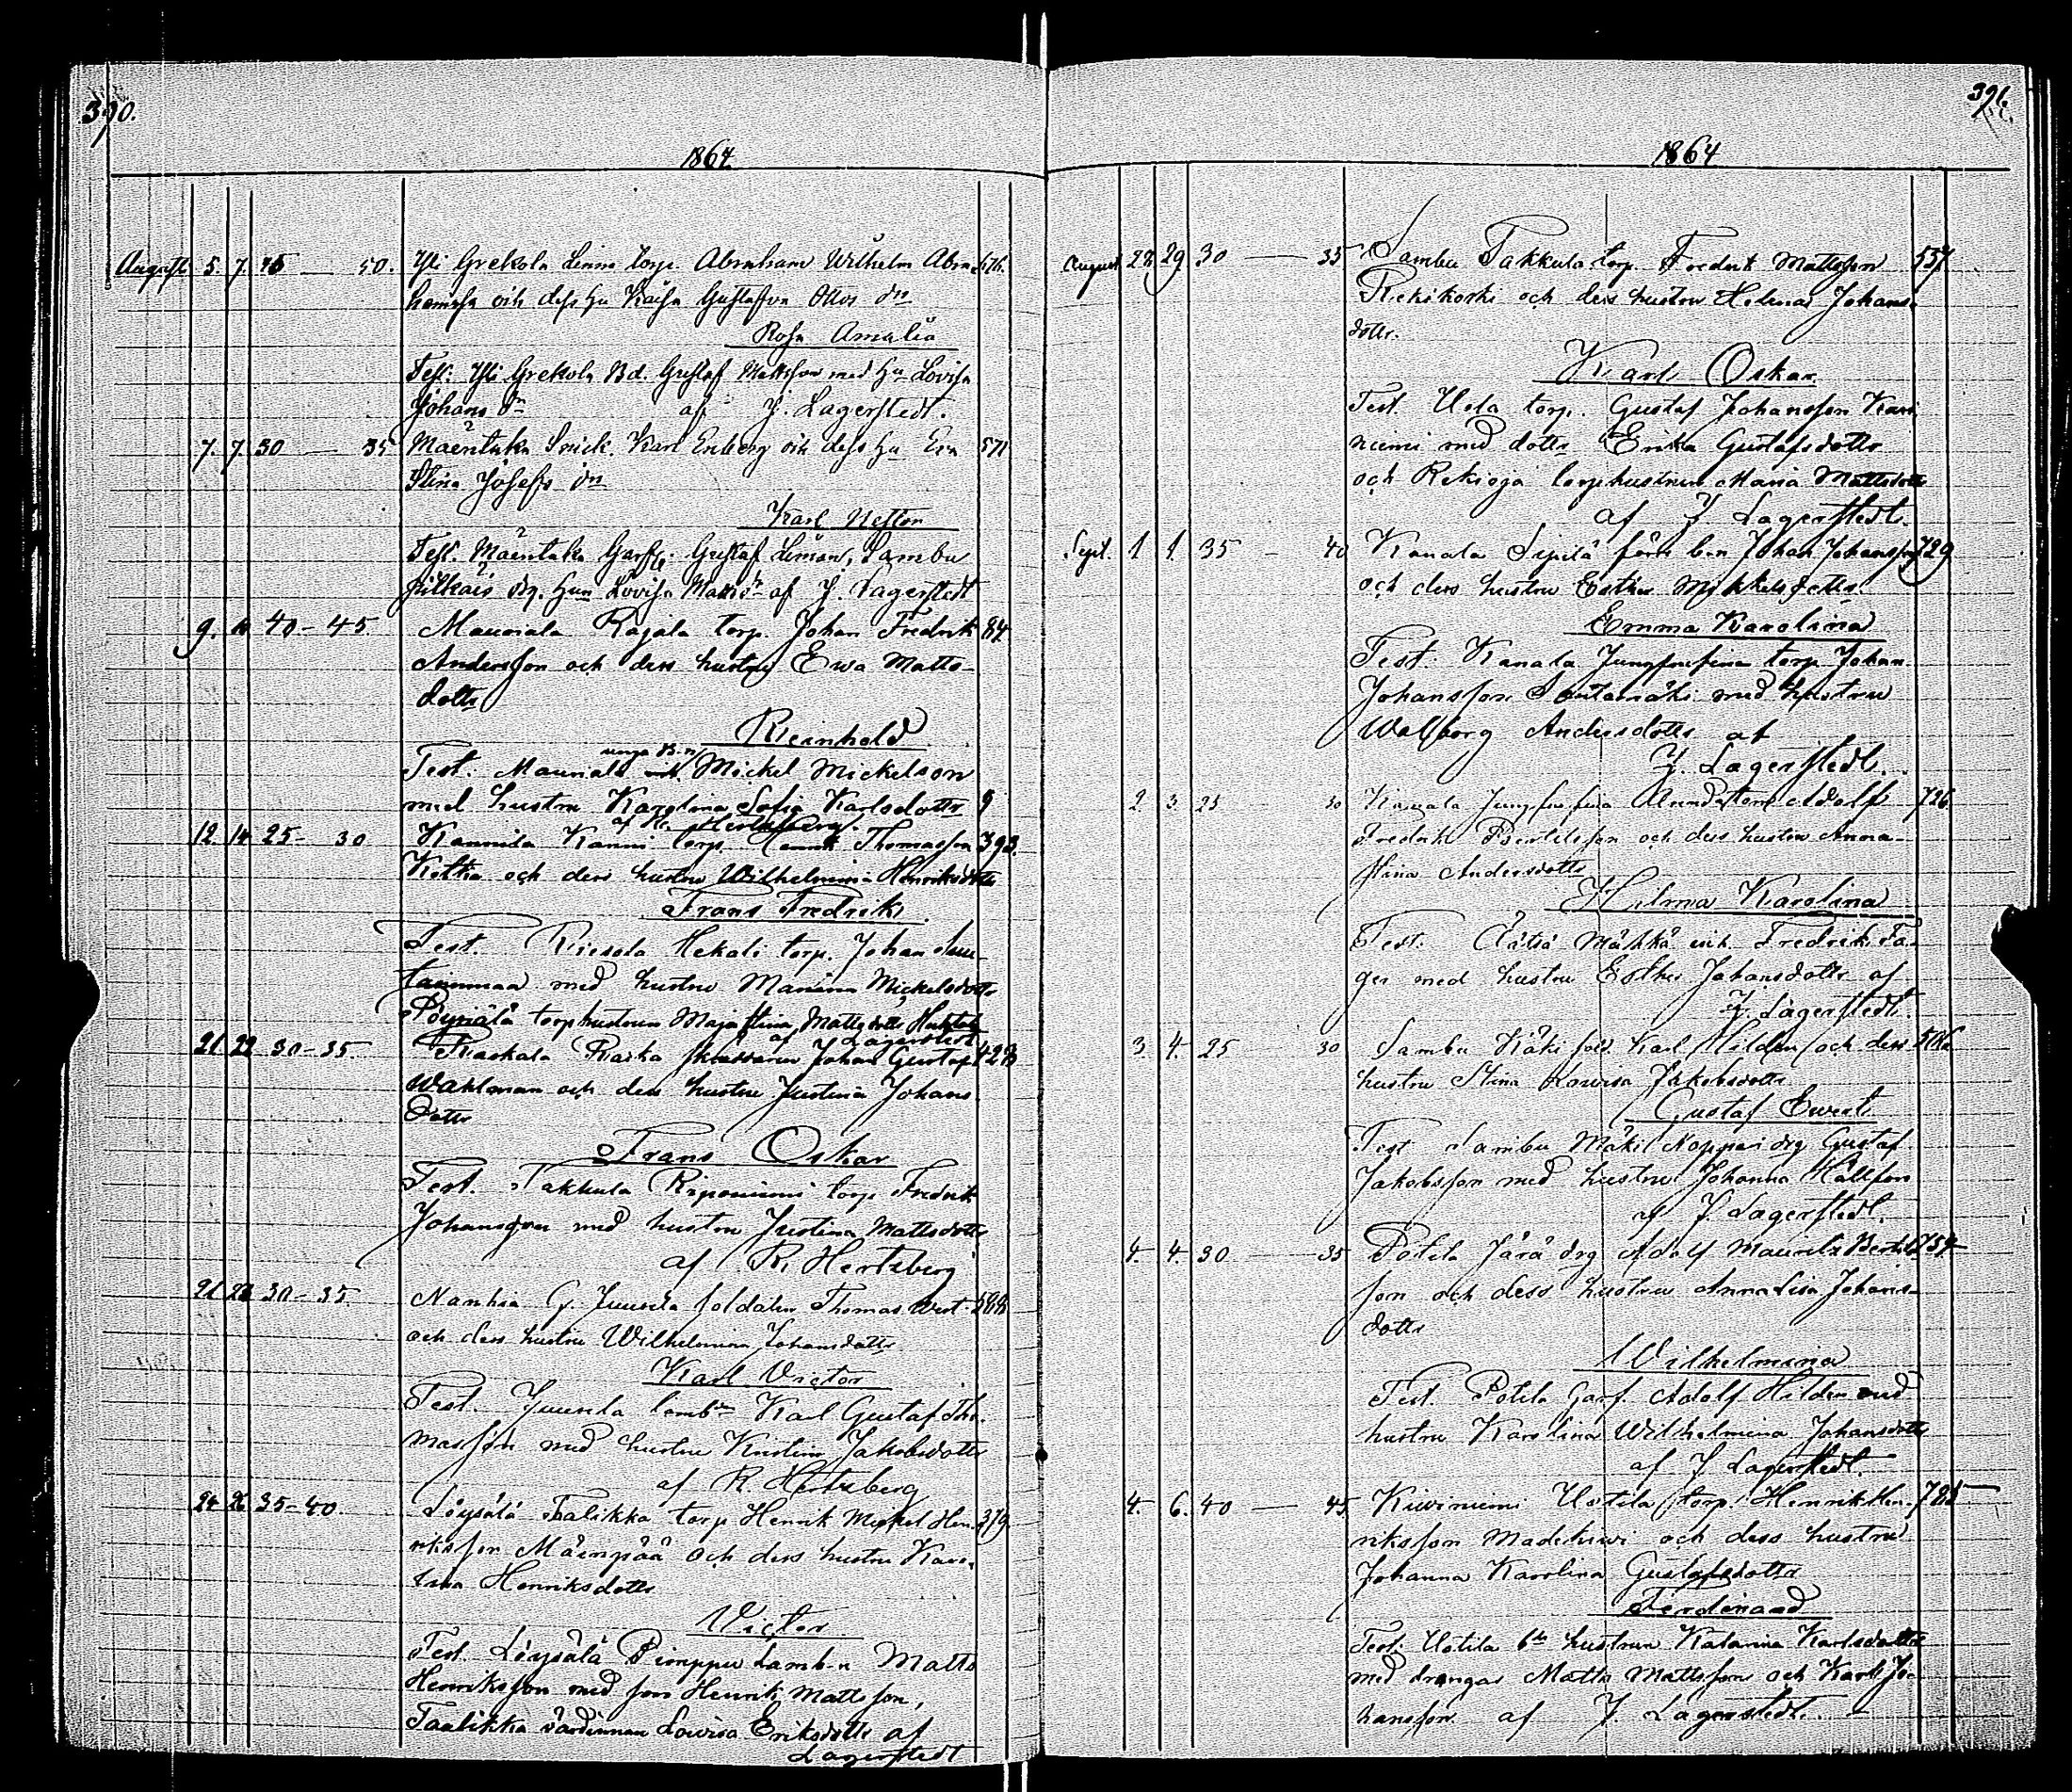 390.
1864
August 5. 7. 45 — 50. Yli Grekola Linna torp. Abraham Wilhelm Abra 576.
hamssn och dess Hu Kaisa Gustafva Ottos dr
Rosa Amalia
Test. Yli Grekola Bd. Gustaf Mattsson med Hu Lovisa
Johans dr af J. Lagerstedt.
7. 7. 30 — 35 Mäentaka Snick. Karl Enberg och dess Hu Eva 571
Stina Josefs dr
Karl Nestor
Test. Mäentaka Garfv. Gustaf Liman, Sambu
drg. Hun Lovisa Matts dr af J. Lagerstedt
9. 10 40 - 45 Mauriala Rajala torp. Johan Fredrik 84
Andersson och dess hustru Ewa Matts-
dottr
Reinhold
unga B-n
Test. Mauriala Mickel Mickelson
med hustru Karolina Sofia Karlsdottr 9
af R. Hertzberg.
12. 14 25 - 30 Kannila Kanni torp. Henrik Thomasson 393.
Kotka och dess hustru Wilhelmina Henriksdottr
Frans Fredrik
Test. Riesola Hekali torp. Johan
med hustru Maria Mickelsdottr
Pöyriälä torphustrun Maja Stina Mattsdottr
af Lagerstedt
21 22 30 - 35. Raskala Raska Johan Gustaf 428
Wahlman och dess hustru Justina Johans
dottr
Frans Oskar
Test. Takkula Riponiemi torp Fredrik
Johansson med hustru Justina Mattsdottr
af R. Hertzberg
21 23 30 - 35 Nanhia G. Juusela soldaten Thomas West 588
och dess hustru Wilhelmina Johansdottr
Karl Victor
Test. Juusela lamb-n Karl Gustaf Tho-
masson med hustru Kristina Jakobsdottr
af R. Hertzberg
24 26 35 - 40. Löysälä Talikka torp Henrik Mickel Hen- 379
riksson Mäenpää och dess hustru Karo-
lina Henriksdottr
Victor
Test. Löysälä Pimppu Lamb-n Matts
Henriksson med son Henrik Mattsson,
Taalikka värdinnan Lovisa Eriksdottr af
Lagerstedt
391.
1864
August 28 29 30 — 35 Sambu Takkula torp. Fredrik Mattsson 557
Riekikoski och dess hustru Helena Johans-
dottr.
Karl Oskar
Test. Uola torp. Gustaf Johansson Kari
niemi med dottr Erika Gustafsdottr
och Rekioja torphustrun Maria Mattsdottr
af J. Lagerstedt.
Sept. 1 1. 35 - 40 Kanala Sipilä förra b-n Johan Johansson 729
och dess hustru Esther Mikkelsdottr.
Emma Karolina
Test. Kanala Jungfrufina torp Johan
Johansson Santamäki med hustru
Walborg Andersdottr af
J. Lagerstedt.
2. 3. 25 30 Kanala Jungfrufina Adolf 726
Fredrik Bertilsson och dess hustru Anna-
stina Andersdottr
Hilma Karolina
Test. Äätsä Mähkä Fredrik Fa-
ger med hustru Esther Johansdottr af
J. Lagerstedt.
3. 4. 25 30 Sambu Käki sold. Karl Hilden och dess 586
hustru Stina Lowisa Jakobsdottr
Gustaf Evert
Test Sambu Mäki Noppari drg Gustaf
Jakobsson med hustru Johanna
af J. Lagerstedt.
4. 4. 30 — 35 Potila Järä drg Adolf Maurits Bertils 752
son och dess hustru Annalisa Johans-
dottr
Wilhelmina
Test. Potila Garf. Adolf Hilden med
hustru Karolina Wilhelmina Johansdottr
af J. Lagerstedt.
4. 6. 40 — 45 Kiviniemi Uotila torp. Henrik Hen- 785
riksson Madekivi och dess hustru
Johanna Karolina Gustafsdottr
Ferdinand
Test. Uotila b-de hustrun Katarina Karlsdottr
med drengar Matts Mattsson och Karl Jo-
hansson af J. Lagerstedt.